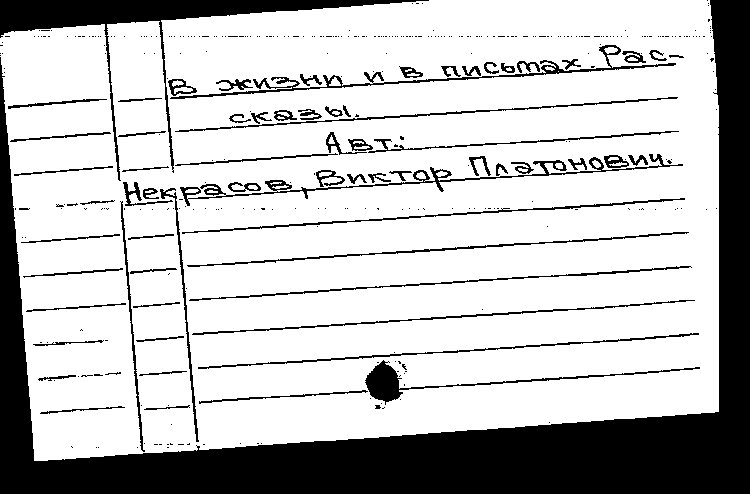 В жизни и в письмах. Рас-
сказы.
Авт.:
Некрасов, Виктор Платонович.